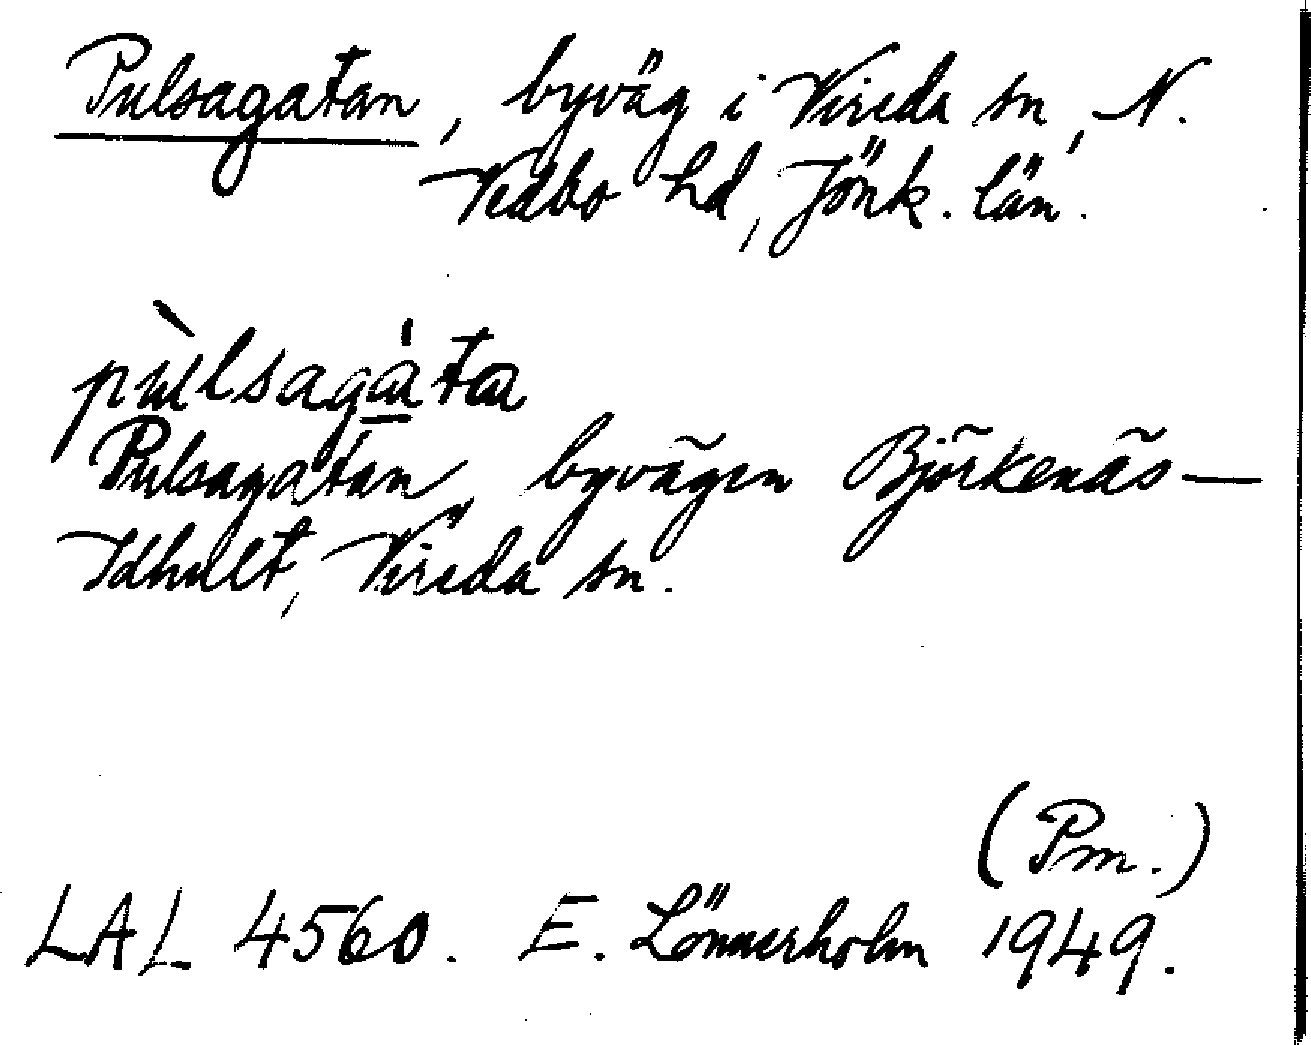 Pulsagatan, byväg i Vireda sn, N.
Vedbo hd, Jönk. län.
pùlsagáta
Pulsagatan, byvägen Björkenäs—
Idhult, Vireda sn.
(Pm.)
LAL 4560. E. Lönnerholm 1949.